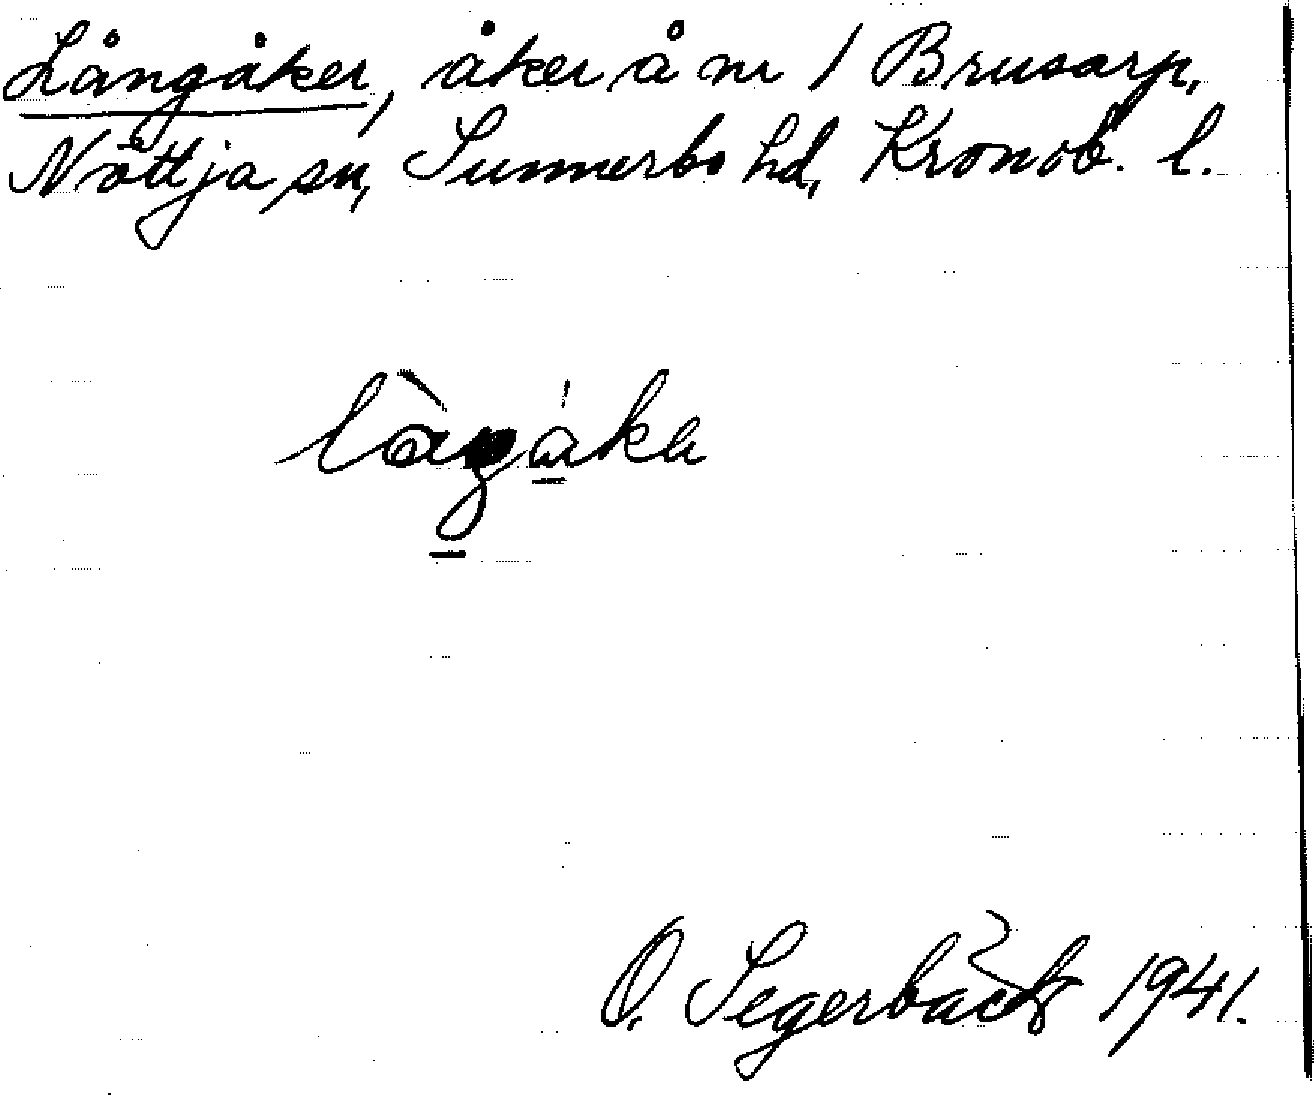 Långåker, åker å nr 1 Brusarp,
Nöttja sn, Sunnerbo hd, Kronob. l.
O. Segerbäck 1941.